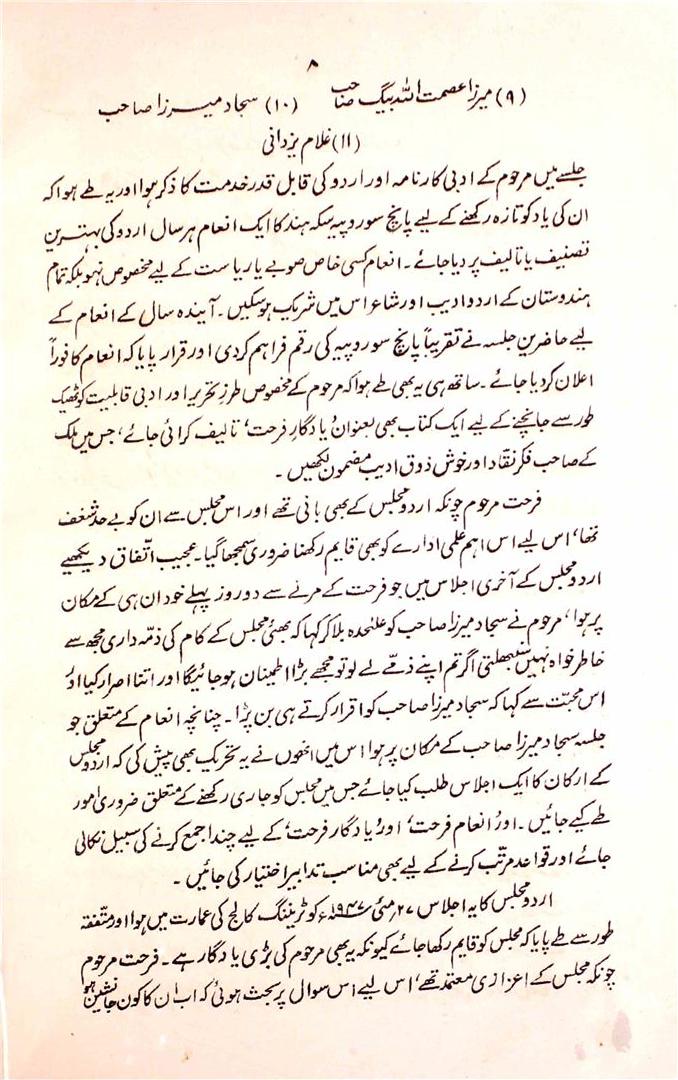 ۸
(۹) میرزا عصمت اللہ بیگ صاحب (۱۰) سجاد میرزا صاحب
(۱۱) غلام یزدانی
جلسے میں مرحوم کے ادبی کارنامہ اور اردو کی قابل قدر خدمت کا ذکر ہوا اور یہ طے ہوا کہ
ان کی یاد کو تازہ رکھنے کے لیے پانچ سو روپیہ سکہ ہند کا ایک انعام ہر سال اردو کی بہترین
تصنیف یا تالیف پر دیا جائے۔ انعام کسی خاص صوبے یا ریاست کے لیے مخصوص نہو بلکہ تمام
ہندوستان کے اردو ادیب اور شاعر اس میں شریک ہو سکیں۔ آیندہ سال کے انعام کے
لیے حاضرین جلسہ نے تقریباً پانچ سو روپیہ کی رقم فراہم کر دی اور قرار پایا کہ انعام کا فوراً
اعلان کر دیا جائے۔ ساتھ ہی یہ بھی طے ہوا کہ مرحوم کے مخصوص طرز تحریر اور ادبی قابلیت کو ٹھیک
طور سے جانچنے کے لیے ایک کتاب بھی بعنوان ’یادگار فرحت‘ تالیف کرائی جائے، جس میں ملک
کے صاحب فکر نقاد اور خوش ذوق ادیب مضمون لکھیں۔
فرحت مرحوم چونکہ اردو مجلس کے بھی بانی تھے اور اس مجلس سے ان کو بے حد شغف
تھا، اس لیے اس اہم علمی ادارے کو بھی قایم رکھنا ضروری سمجھا گیا۔ عجیب اتّفاق دیکھیے
اردو مجلس کے آخری اجلاس میں جو فرحت کے مرنے سے دو روز پہلے خود ان ہی کے مکان
پر ہوا، مرحوم نے سجاد میرزا صاحب کو علٰحدہ بلا کر کہا کہ بھئی مجلس کے کام کی ذمّہ داری مجھ سے
خاطر خواہ نہیں سنبھلتی اگر تم اپنے ذمّے لے لو تو مجھے بڑا اطمینان ہو جائیگا اور اتنا اصرار کیا اور
اس محبّت سے کہا کہ سجاد میرزا صاحب کو اقرار کرتے ہی بن پڑا۔ چنانچہ انعام کے متعلق جو
جلسہ سجاد میرزا صاحب کے مکان پر ہوا اس میں انھوں نے یہ تحریک بھی پیش کی کہ اردو مجلس
کے ارکان کا ایک اجلاس طلب کیا جائے جس میں مجلس کو جاری رکھنے کے متعلق ضروری امور
طے کیے جائیں۔ اور ’انعام فرحت‘ اور ’یادگار فرحت‘ کے لیے چندا جمع کرنے کی سبیل نکالی
جائے اور قواعد مرتّب کرنے کے لیے بھی مناسب تدابیر اختیار کی جائیں۔
اردو مجلس کا یہ اجلاس ۲۷؍ مئی ۱۹۴۷ء کو ٹریننگ کالج کی عمارت میں ہوا اور متّفقہ
طور سے طے پایا کہ مجلس کو قایم رکھا جائے کیونکہ یہ بھی مرحوم کی بڑی یادگار ہے۔ فرحت مرحوم
چونکہ مجلس کے اعزازی معتمد تھے، اس لیے اس سوال پر بحث ہوئی کہ اب ان کا کون جانشین ہو